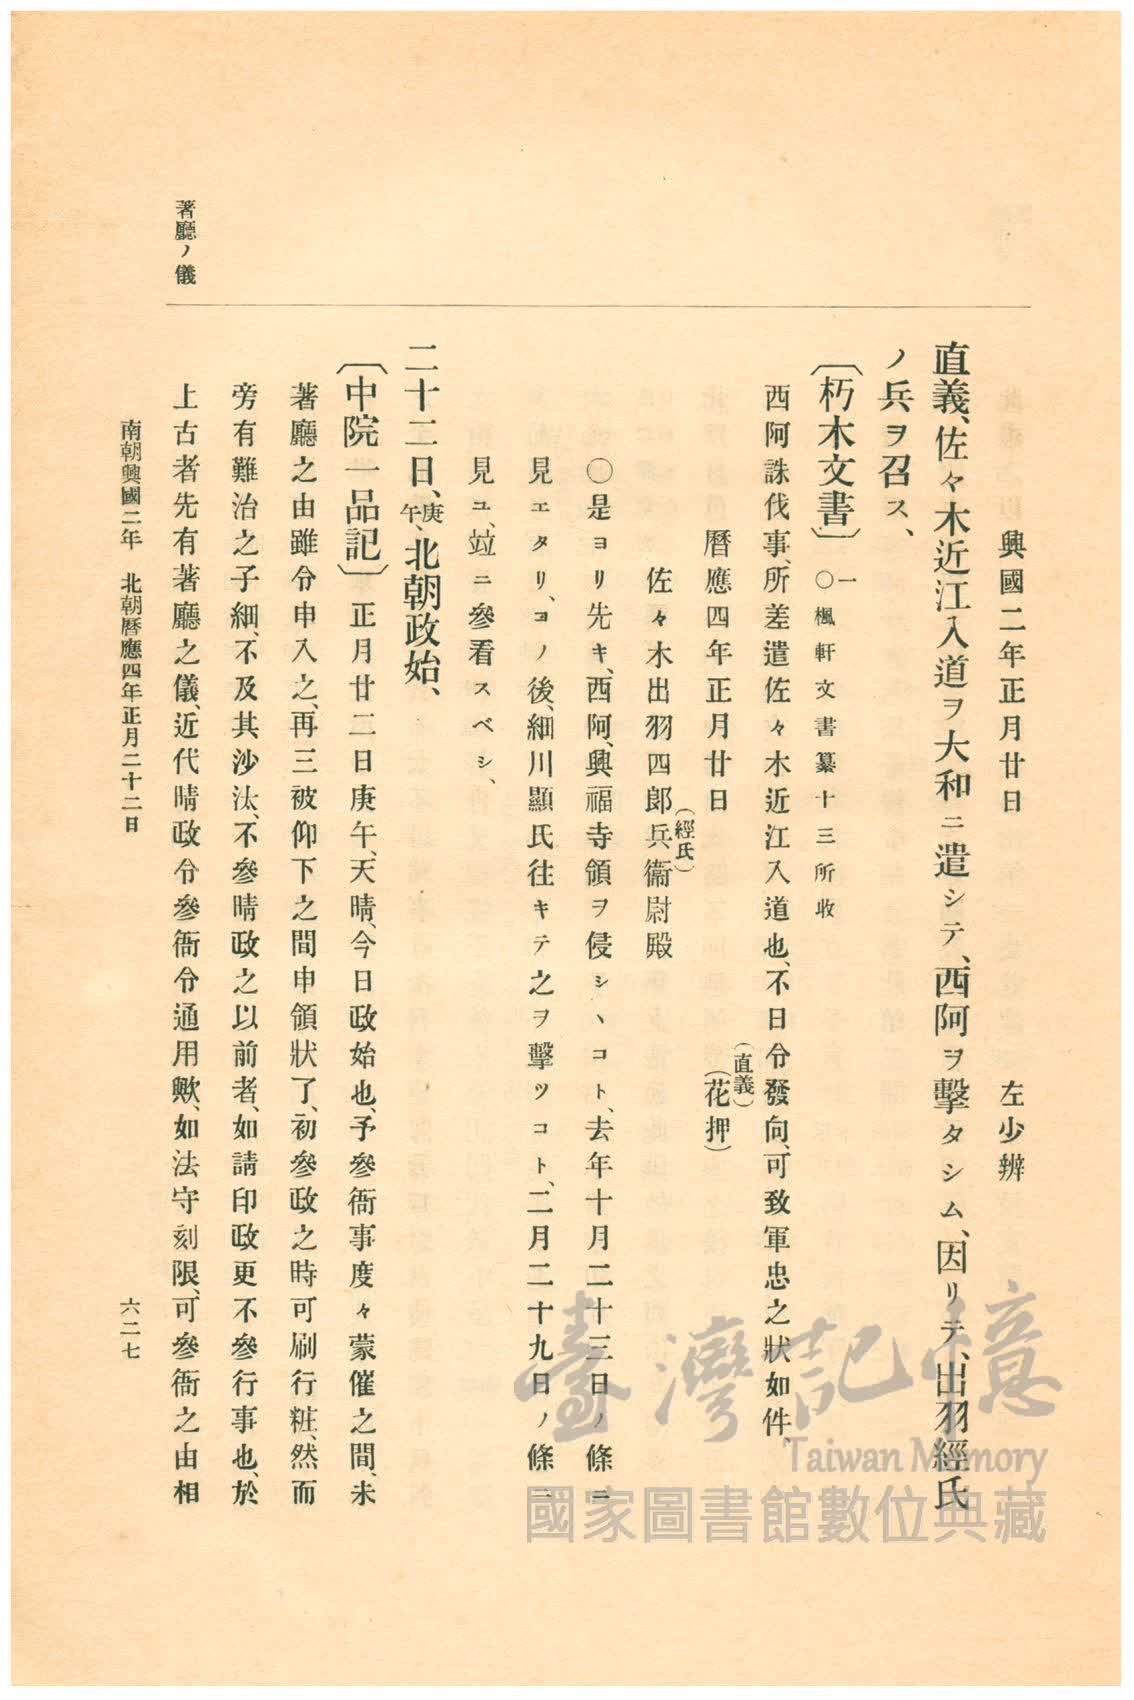 著廳ノ儀
興國二年正月廿日　左少辨
直義、佐々木近江入道ヲ大和ニ遣シテ、西阿ヲ擊タシム、因リテ、出羽經氏
ノ兵ヲ召ス、
〔朽木文書〕一○楓軒文書纂十三所收
西阿誅伐事、所差遣佐々木近江入道也、不日令發向、可致軍忠之狀如件、
(直義)
曆應四年正月廿日　(花押)
(經氏)
佐々木出羽四郎兵衞尉殿
○是ヨリ先キ、西阿、興福寺領ヲ侵シヽコト、去年十月二十三日ノ條ニ
見エタリ、ヨノ後、細川顯氏往キテ之ヲ擊ツコト、二月二十九日ノ條ニ
見ユ、竝ニ參看スベシ、
二十二日、庚午、北朝政始、
〔中院一品記〕正月廿二日庚午、天晴、今日政始也、予參衙事度々蒙催之間、未
著廳之由雖令申入之、再三被仰下之間申領狀了、初參政之時可刷行粧、然而
旁有難治之子細、不及其沙汰、不參晴政之以前者、如請印政更不參行事也、於
上古者先有著廳之儀、近代晴政令參衙令通用歟、如法守刻限、可參衙之由相
南朝興國二年　北朝曆應四年正月二十二日　六二七
臺灣記憶
Taiwan Memory
國家圖書館數位典藏